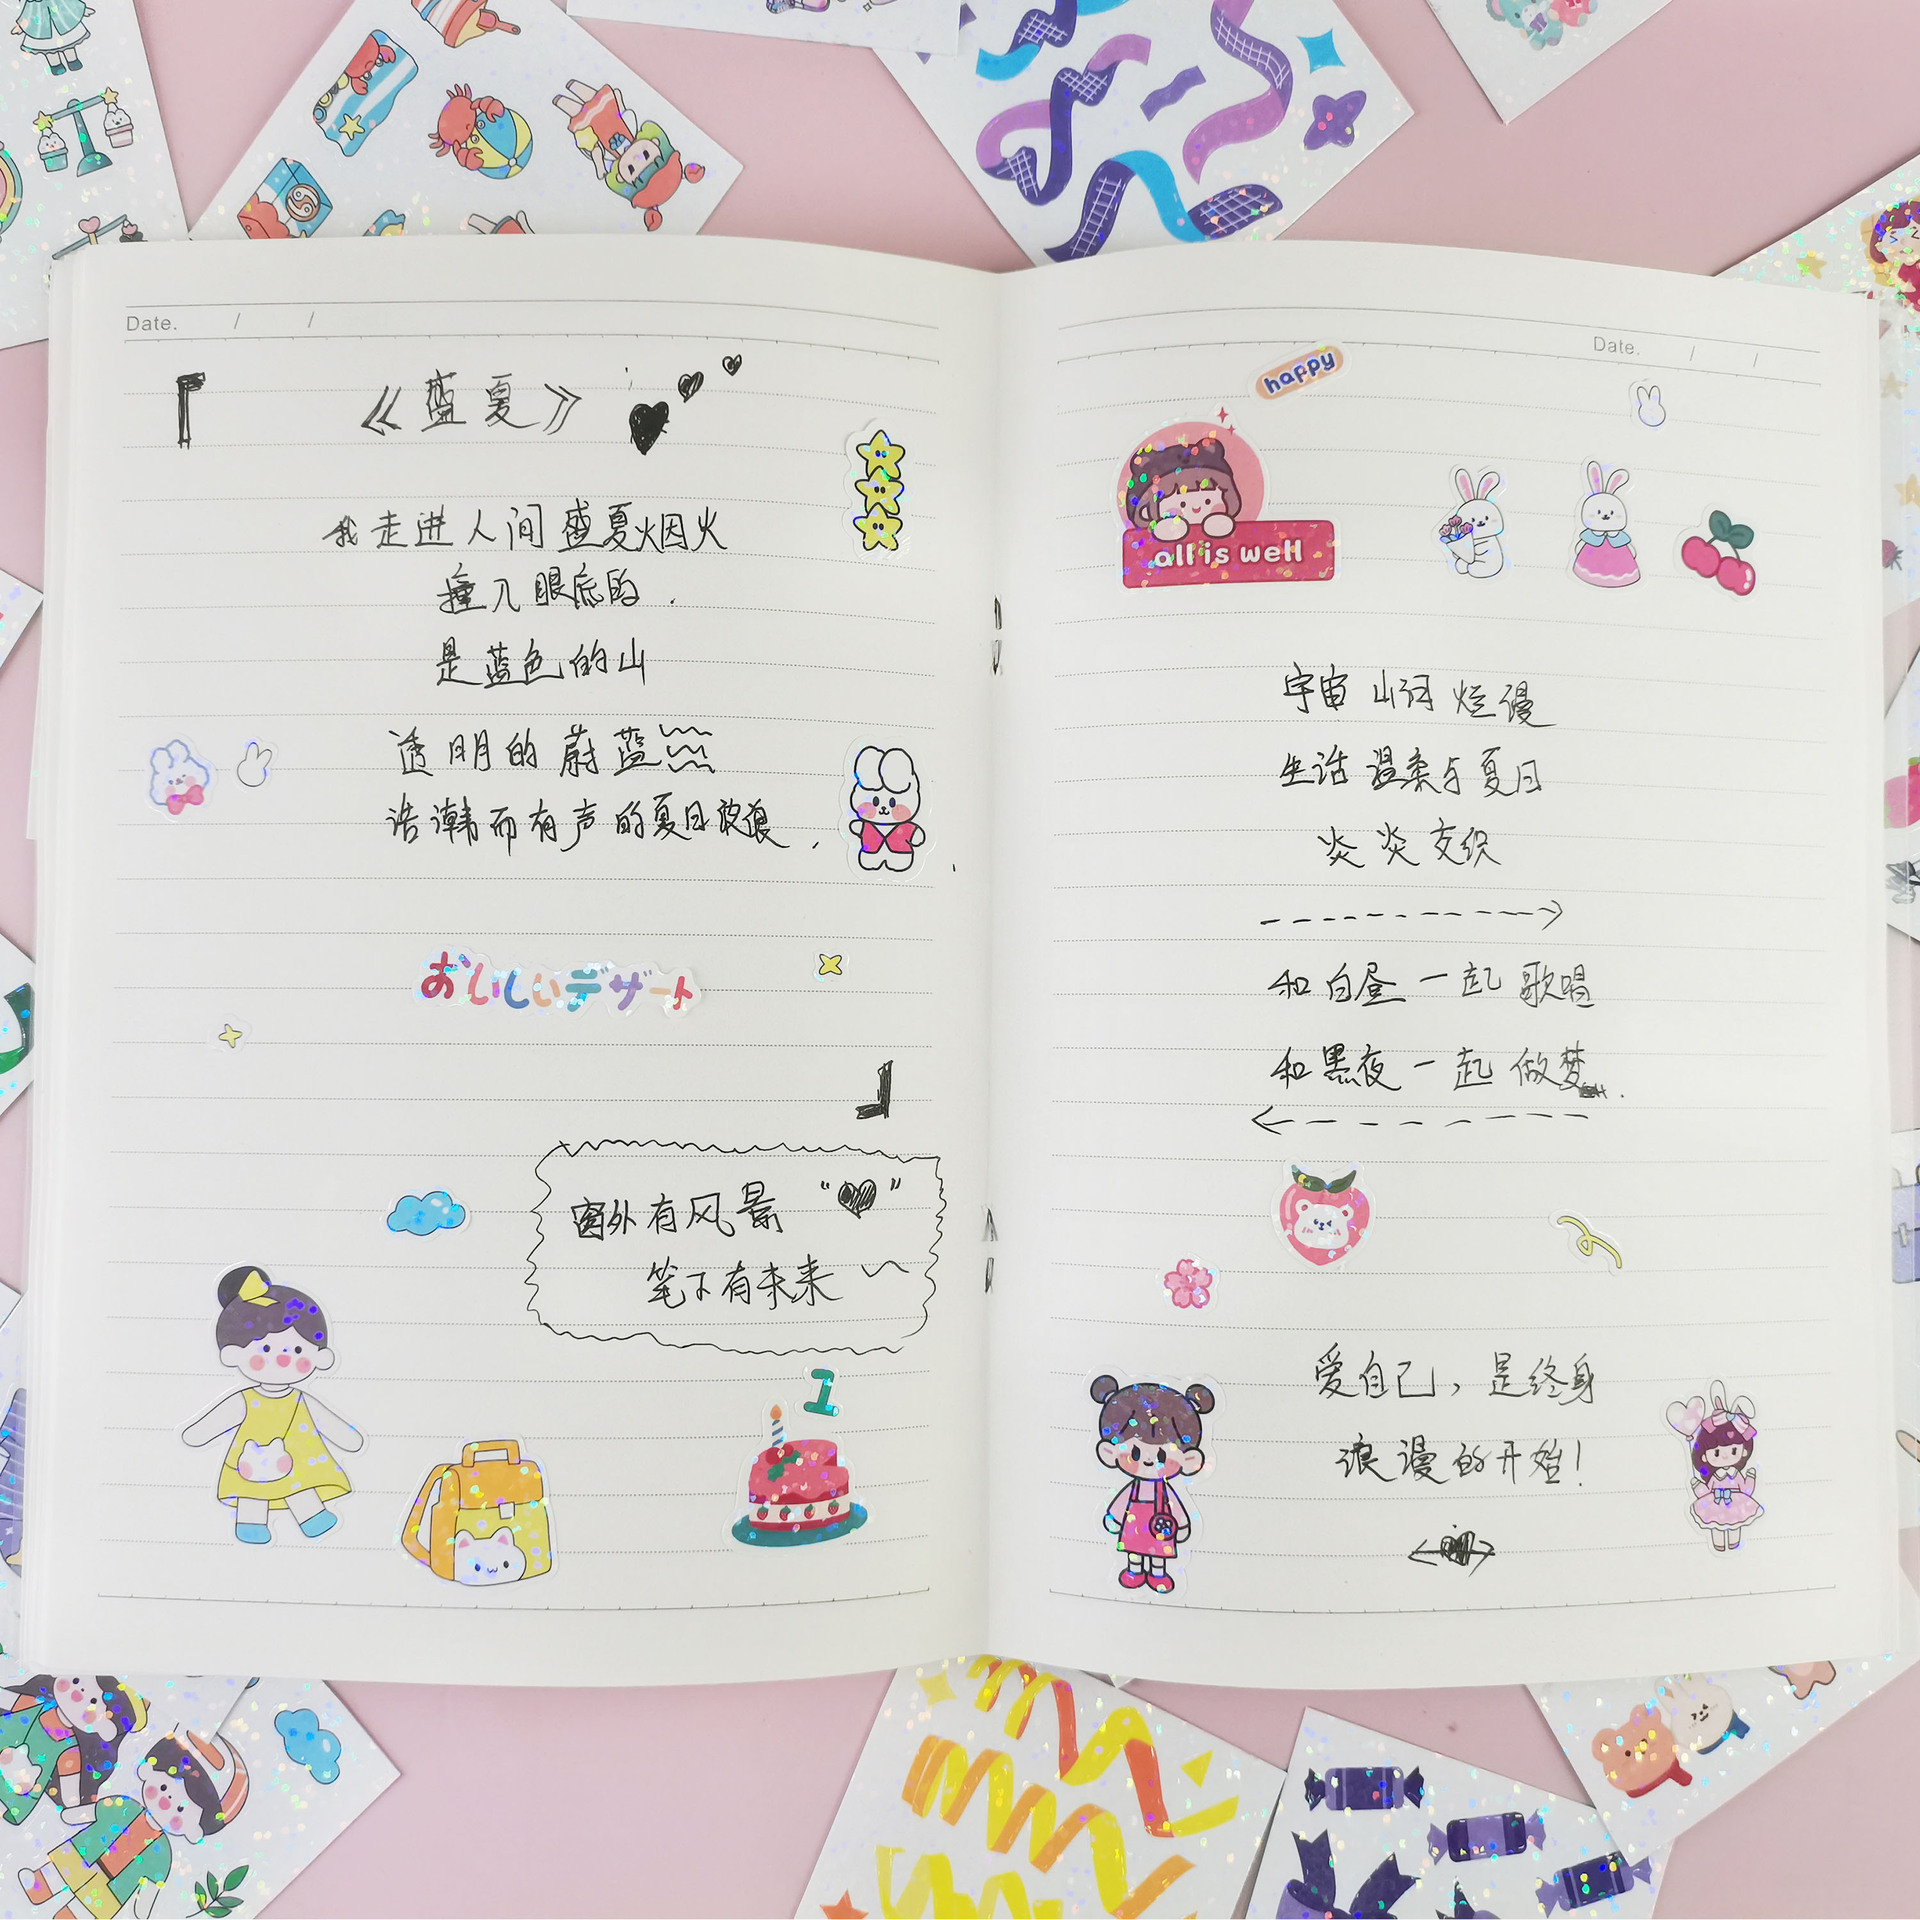 Date. / /
《盛夏》
我走进人间盛夏烟火
撞入眼底的.
是蓝色的山
透明的蔚蓝
浩瀚而有声的夏日浪
おいしいデザート
窗外有风景“♥”
笔下有未来
1
Date. / /
happy
all is well
宇宙 山河 烂漫
生活 温柔与夏日
炎炎交织
和白昼一起歌唱
和黑夜一起做梦.
爱自己，是终身
浪漫的开始！